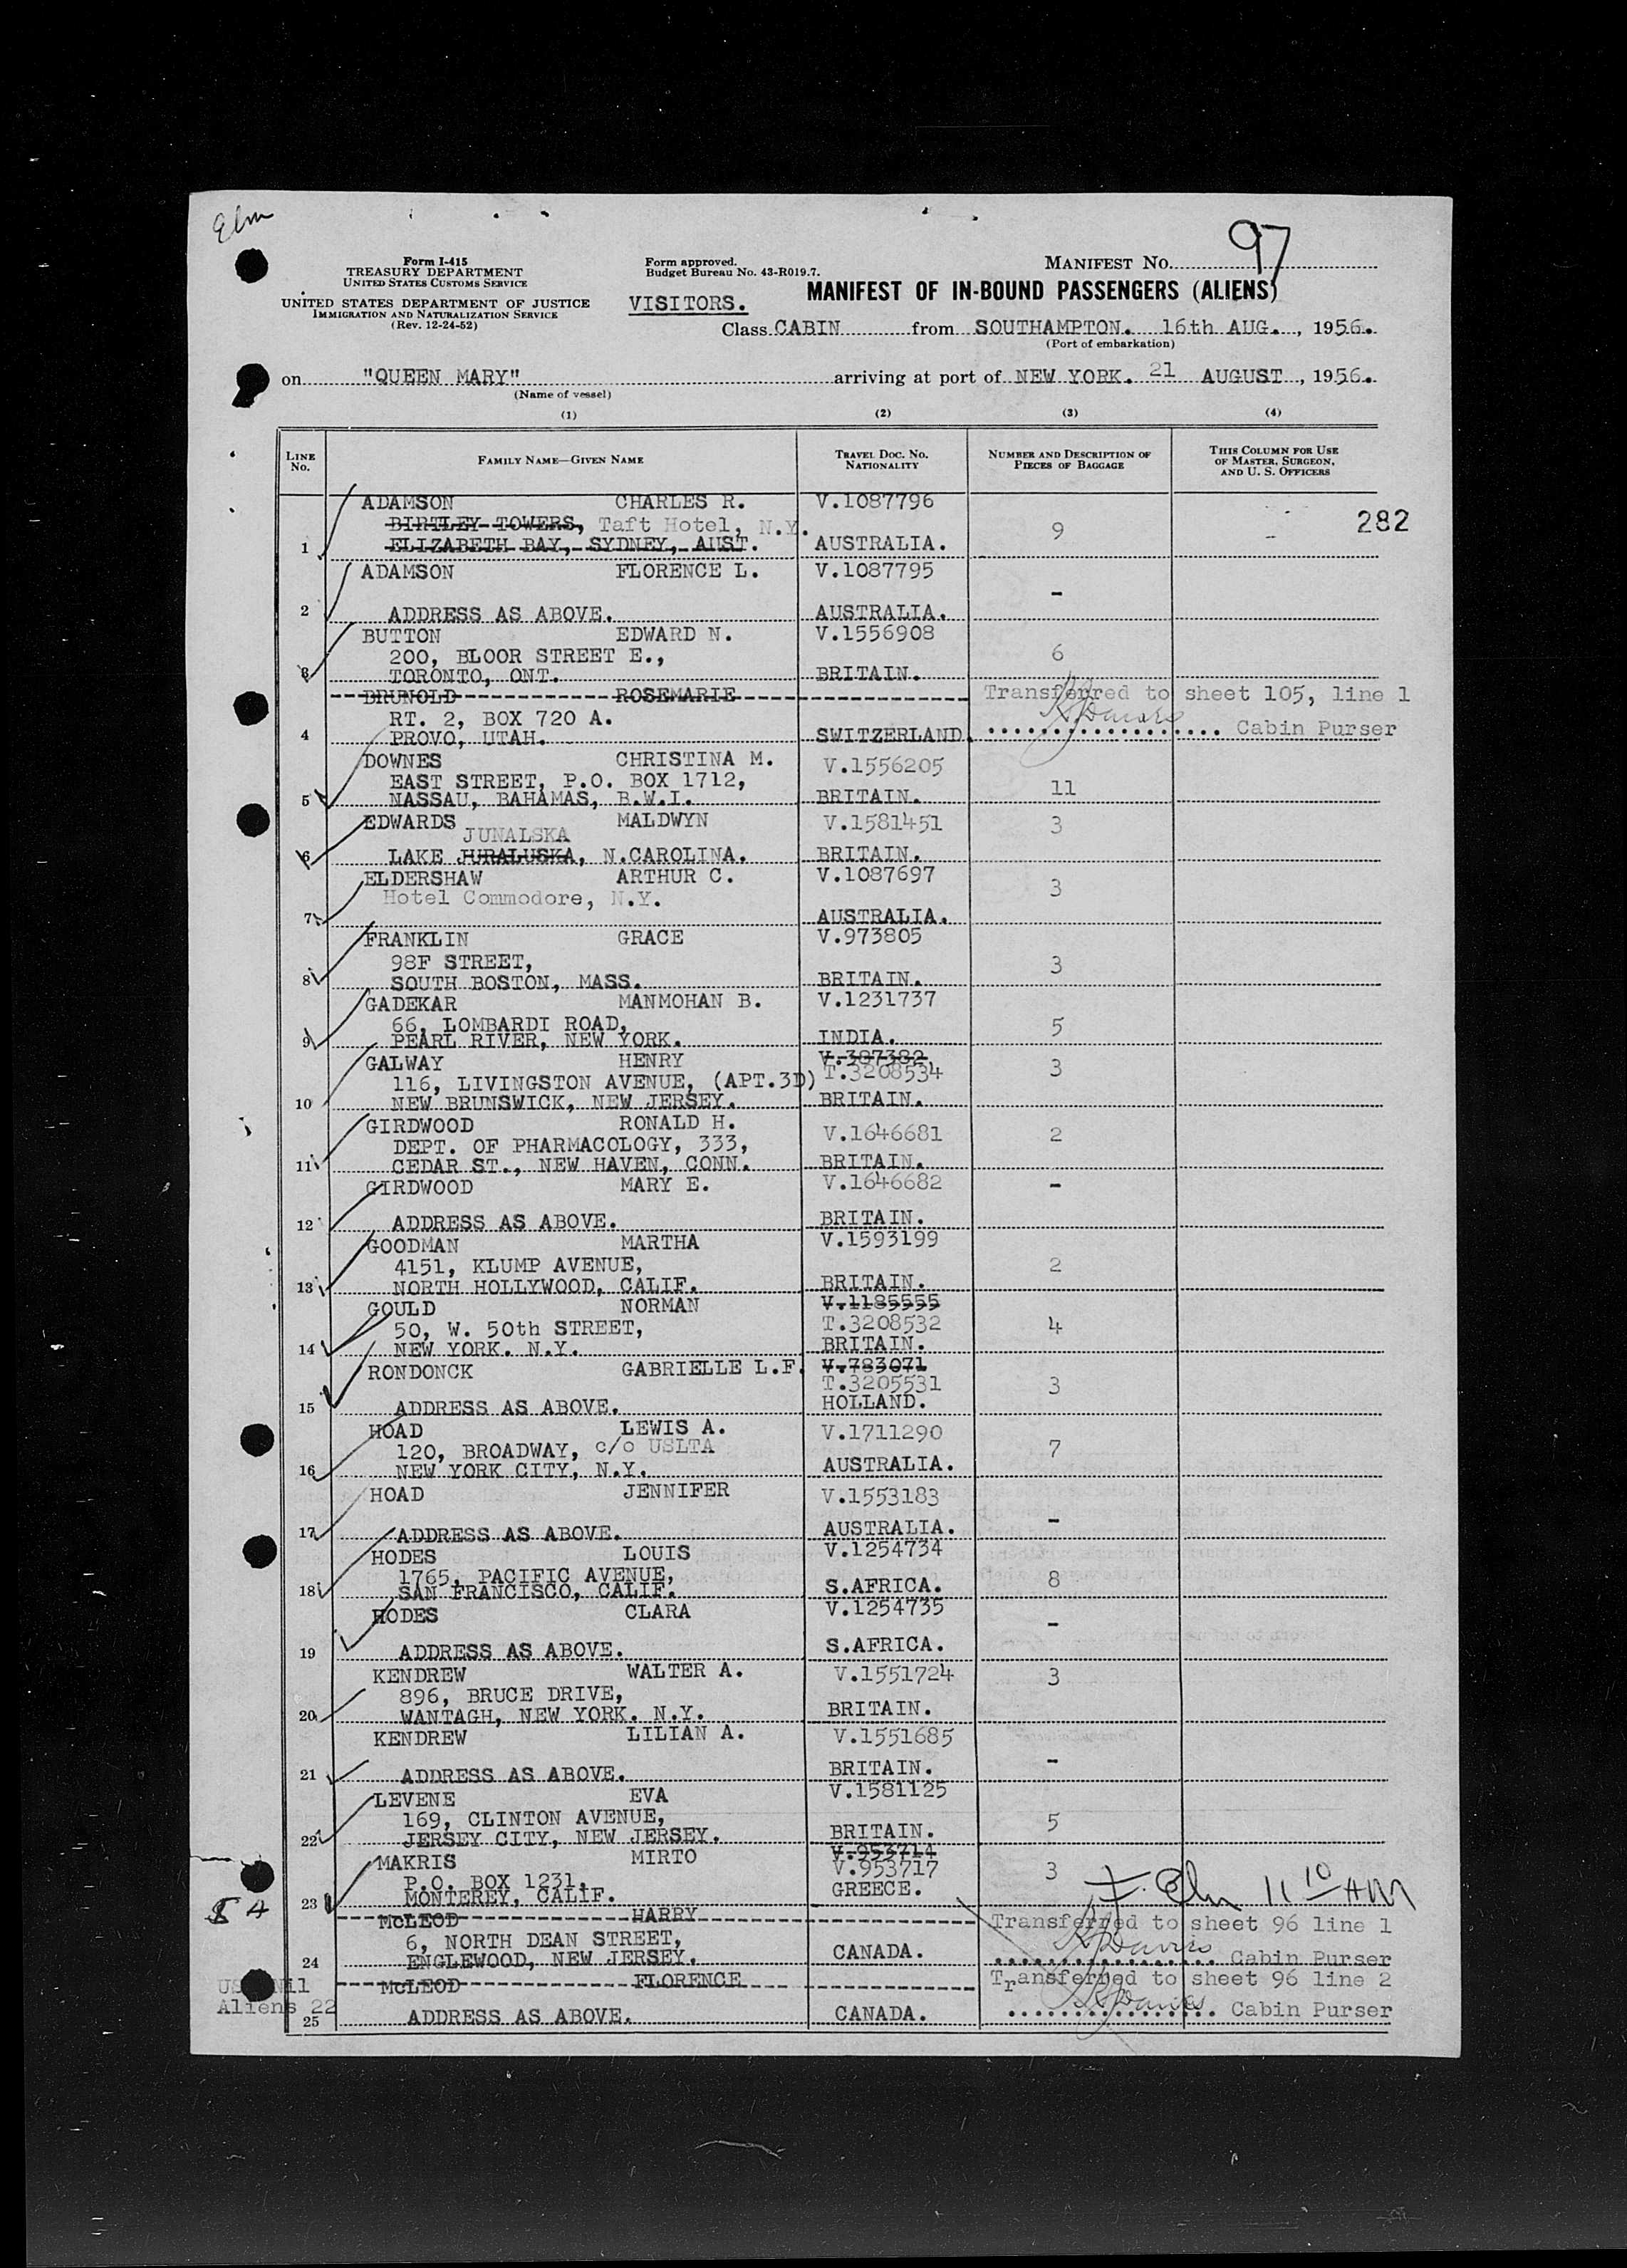 Elm
97
Form I-415
TREASURY DEPARTMENT
UNITED STATES CUSTOMS SERVICE
UNITED STATES DEPARTMENT OF JUSTICE
IMMIGRATION AND NATURALIZATION SERVICE
(Rev. 12-24-52)
Form approved.
Budget Bureau No. 43-R019.7.
MANIFEST NO.
VISITORS.
MANIFEST OF IN-BOUND PASSENGERS (ALIENS)
Class CABIN from SOUTHAMPTON. 16th AUG., 1956.
(Port of embarkation)
on "QUEEN MARY" arriving at port of NEW YORK. 21 AUGUST, 1956.
(Name of vessel)
(1) (2) (3) (4)
LINE NO. FAMILY NAME—GIVEN NAME TRAVEL DOC. NO. NATIONALITY NUMBER AND DESCRIPTION OF PIECES OF BAGGAGE THIS COLUMN FOR USE OF MASTER, SURGEON, AND U. S. OFFICERS
ADAMSON CHARLES R. V.1087796
BIRTLEY TOWERS, Taft Hotel, N.Y. 9 282
1 ELIZABETH BAY, SYDNEY, AUST. AUSTRALIA.
ADAMSON FLORENCE L. V.1087795
-
2 ADDRESS AS ABOVE. AUSTRALIA.
BUTTON EDWARD N. V.1556908
200, BLOOR STREET E., 6
3 TORONTO, ONT. BRITAIN.
BRUNOLD ROSEMARIE Transferred to sheet 105, line 1
RT. 2, BOX 720 A.
4 PROVO, UTAH. SWITZERLAND. Cabin Purser
DOWNES CHRISTINA M. V.1556205
EAST STREET, P.O. BOX 1712, 11
5 NASSAU, BAHAMAS, B.W.I. BRITAIN.
EDWARDS MALDWYN V.1581451 3
JUNALSKA
6 LAKE JURALUSKA, N.CAROLINA. BRITAIN.
ELDERSHAW ARTHUR C. V.1087697
Hotel Commodore, N.Y. 3
7 AUSTRALIA.
FRANKLIN GRACE V.973805
98F STREET, 3
8 SOUTH BOSTON, MASS. BRITAIN.
GADEKAR MANMOHAN B. V.1231737
66, LOMBARDI ROAD, 5
9 PEARL RIVER, NEW YORK. INDIA.
GALWAY HENRY V.387382
116, LIVINGSTON AVENUE, (APT.3D) T.3208534 3
10 NEW BRUNSWICK, NEW JERSEY. BRITAIN.
GIRDWOOD RONALD H. V.1646681 2
DEPT. OF PHARMACOLOGY, 333,
11 CEDAR ST., NEW HAVEN, CONN. BRITAIN.
GIRDWOOD MARY E. V.1646682 -
12 ADDRESS AS ABOVE. BRITAIN.
GOODMAN MARTHA V.1593199
4151, KLUMP AVENUE, 2
13 NORTH HOLLYWOOD, CALIF. BRITAIN.
GOULD NORMAN V.1185555
50, W. 50th STREET, T.3208532 4
14 NEW YORK. N.Y. BRITAIN.
RONDONCK GABRIELLE L.F. V.783071
T.3205531 3
15 ADDRESS AS ABOVE. HOLLAND.
HOAD LEWIS A. V.1711290
120, BROADWAY, c/o USLTA 7
16 NEW YORK CITY, N.Y. AUSTRALIA.
HOAD JENNIFER V.1553183
-
17 ADDRESS AS ABOVE. AUSTRALIA.
HODES LOUIS V.1254734
1765, PACIFIC AVENUE, 8
18 SAN FRANCISCO, CALIF. S.AFRICA.
HODES CLARA V.1254735
-
19 ADDRESS AS ABOVE. S.AFRICA.
KENDREW WALTER A. V.1551724 3
896, BRUCE DRIVE,
20 WANTAGH, NEW YORK. N.Y. BRITAIN.
KENDREW LILIAN A. V.1551685
-
21 ADDRESS AS ABOVE. BRITAIN.
LEVENE EVA V.1581125
169, CLINTON AVENUE, 5
22 JERSEY CITY, NEW JERSEY. BRITAIN.
MAKRIS MIRTO V.953714
P.O. BOX 1231, V.953717 3
23 MONTEREY, CALIF. GREECE. F. Elm 11 10 AM
McLEOD HARRY Transferred to sheet 96 line 1
6, NORTH DEAN STREET,
24 ENGLEWOOD, NEW JERSEY. CANADA. Cabin Purser
US Nil McLEOD FLORENCE Transferred to sheet 96 line 2
Aliens 22
25 ADDRESS AS ABOVE. CANADA. Cabin Purser